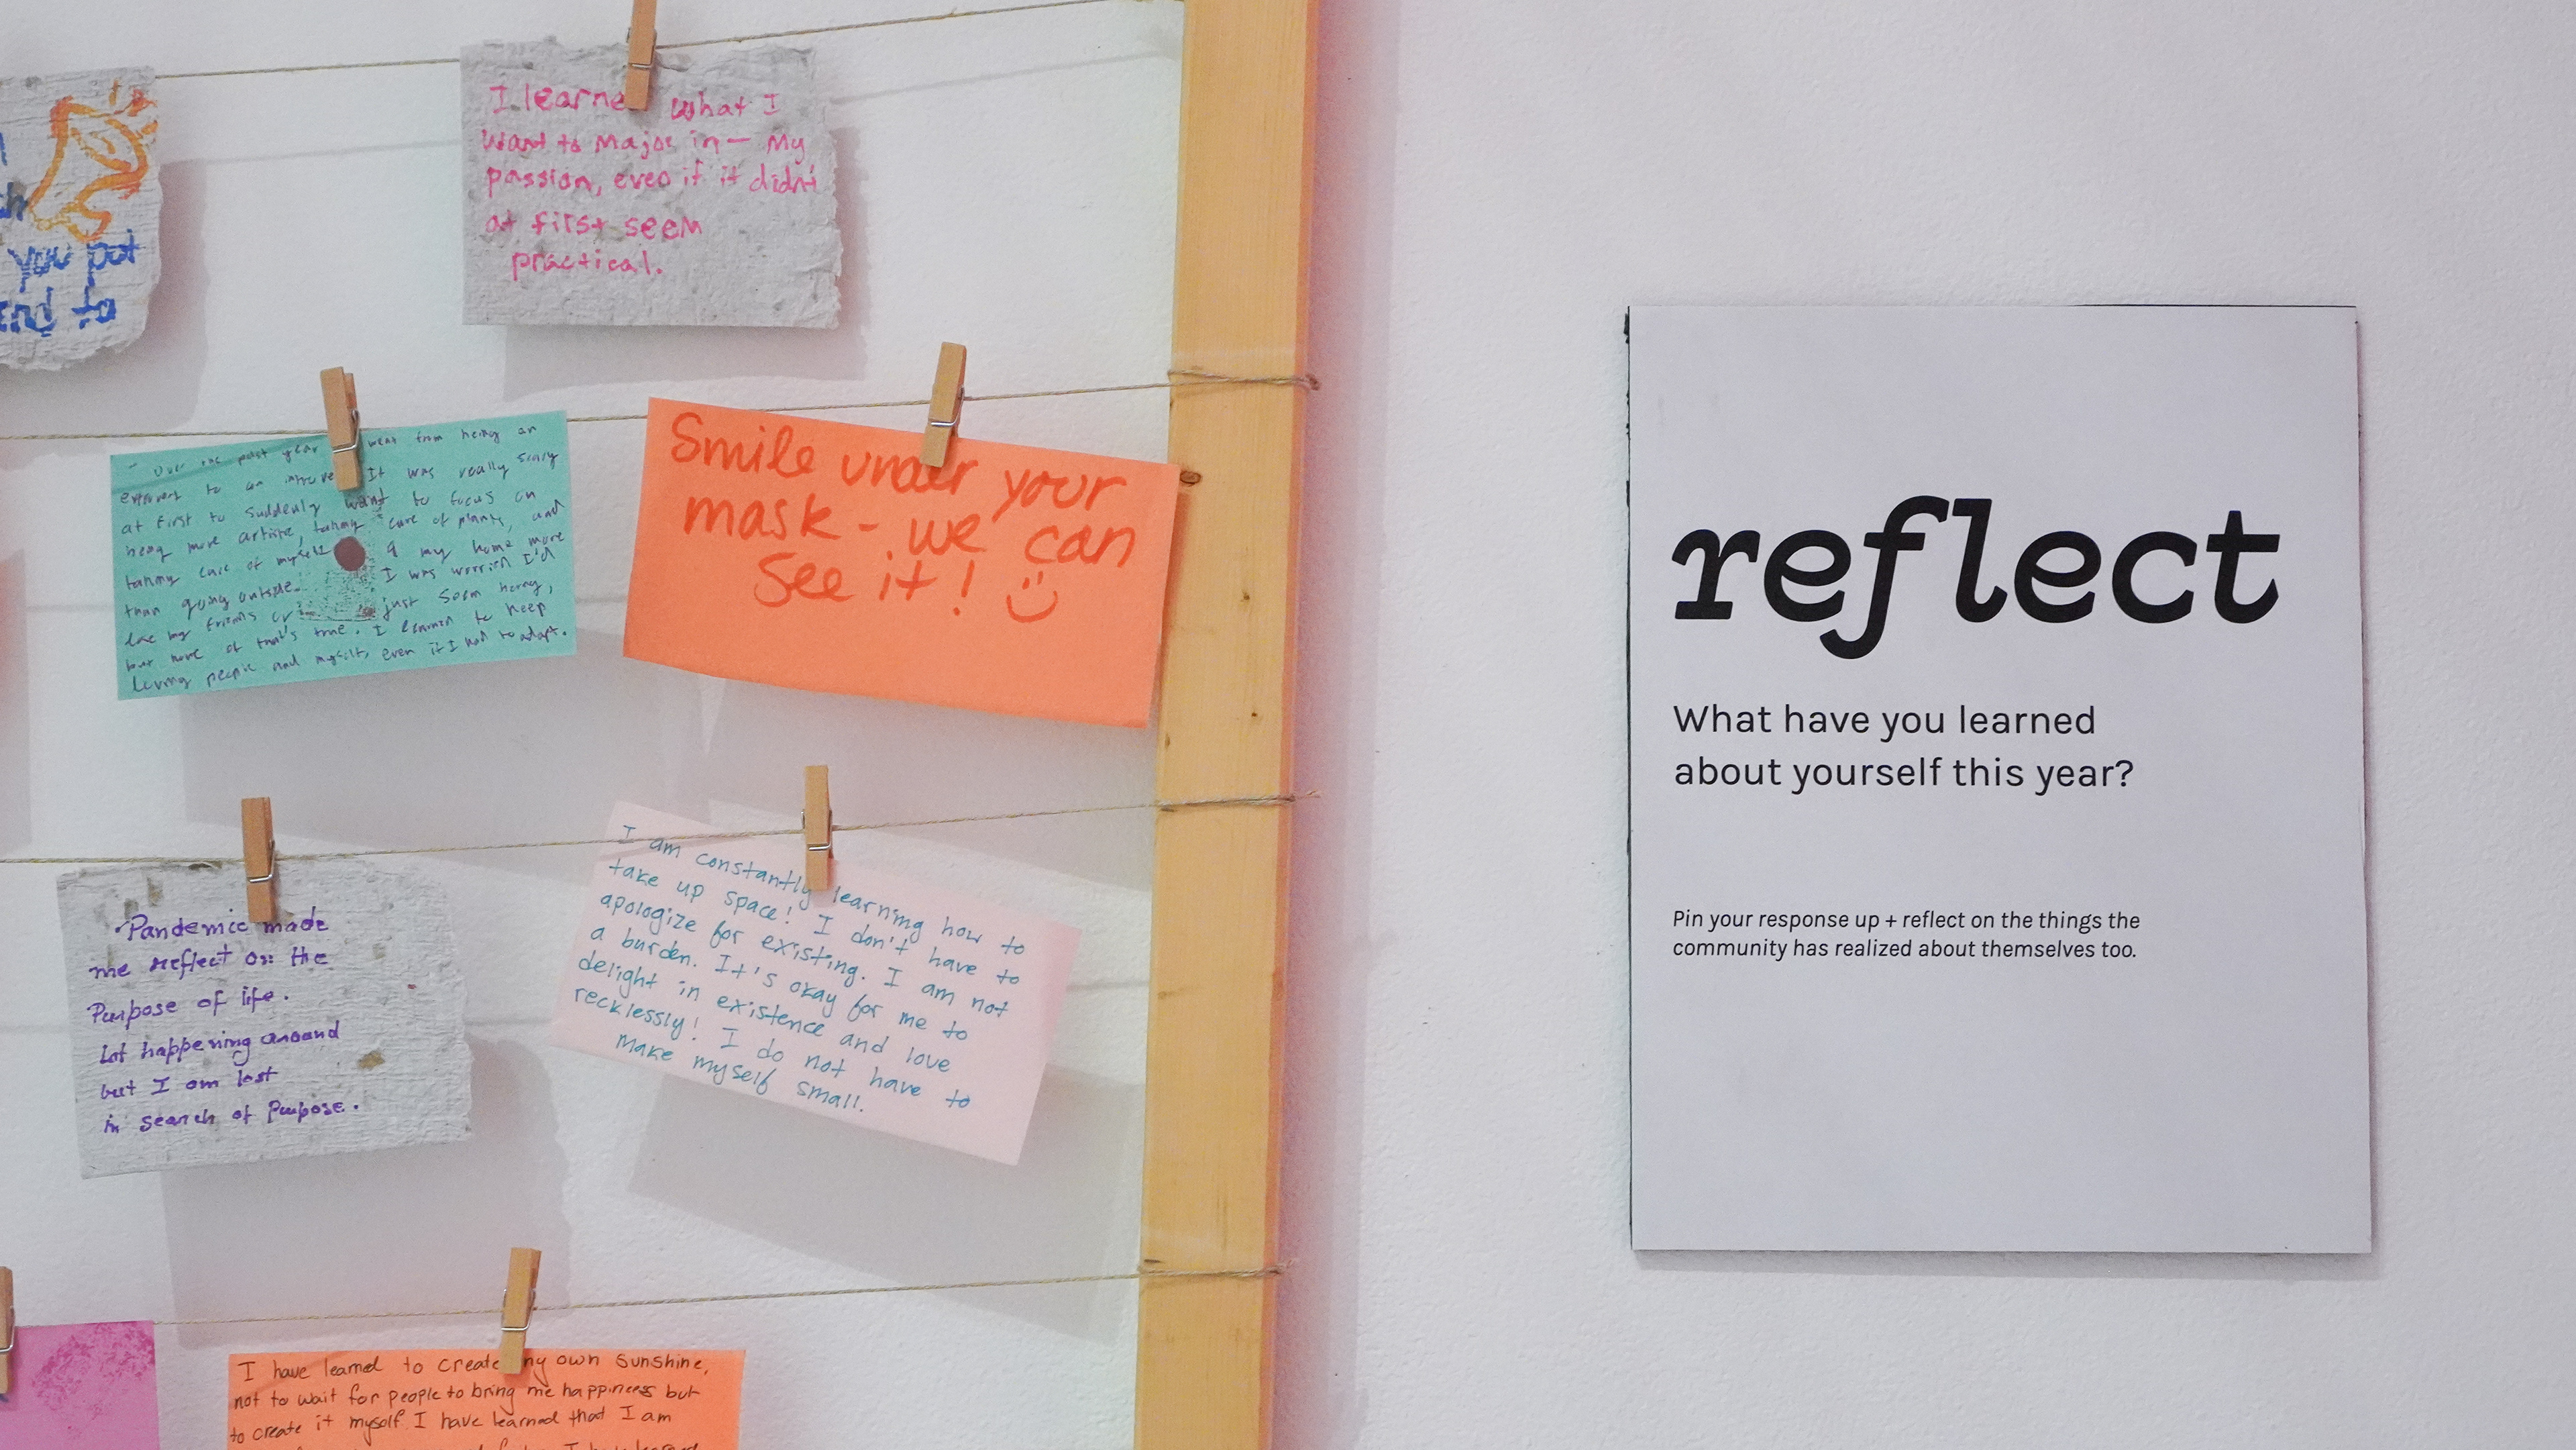 you put
end to
I learne what I
want to Major in — My
passion, even if it didn't
at first seem
practical.
- Over the past year went from being an
extrovert to an introve It was really scary
at first to suddenly want to focus on
being more artistic, taking care of plants, and
taking care of myself & my home more
than going outside. I was worried I'd
lose my friends or just seem boring,
but none of that's true. I learned to keep
Loving people and myself, even if I had to adapt.
Smile under your
mask - we can
see it! :)
Pandemic made
me reflect on the
Purpose of life.
Lot happening around
but I am lost
in search of Purpose.
I am constantly learning how to
take up space! I don't have to
apologize for existing. I am not
a burden. It's okay for me to
delight in existence and love
recklessly! I do not have to
make myself small.
I have learned to create my own sunshine,
not to wait for people to bring me happiness but
to create it myself. I have learned that I am
reflect
What have you learned
about yourself this year?
Pin your response up + reflect on the things the
community has realized about themselves too.